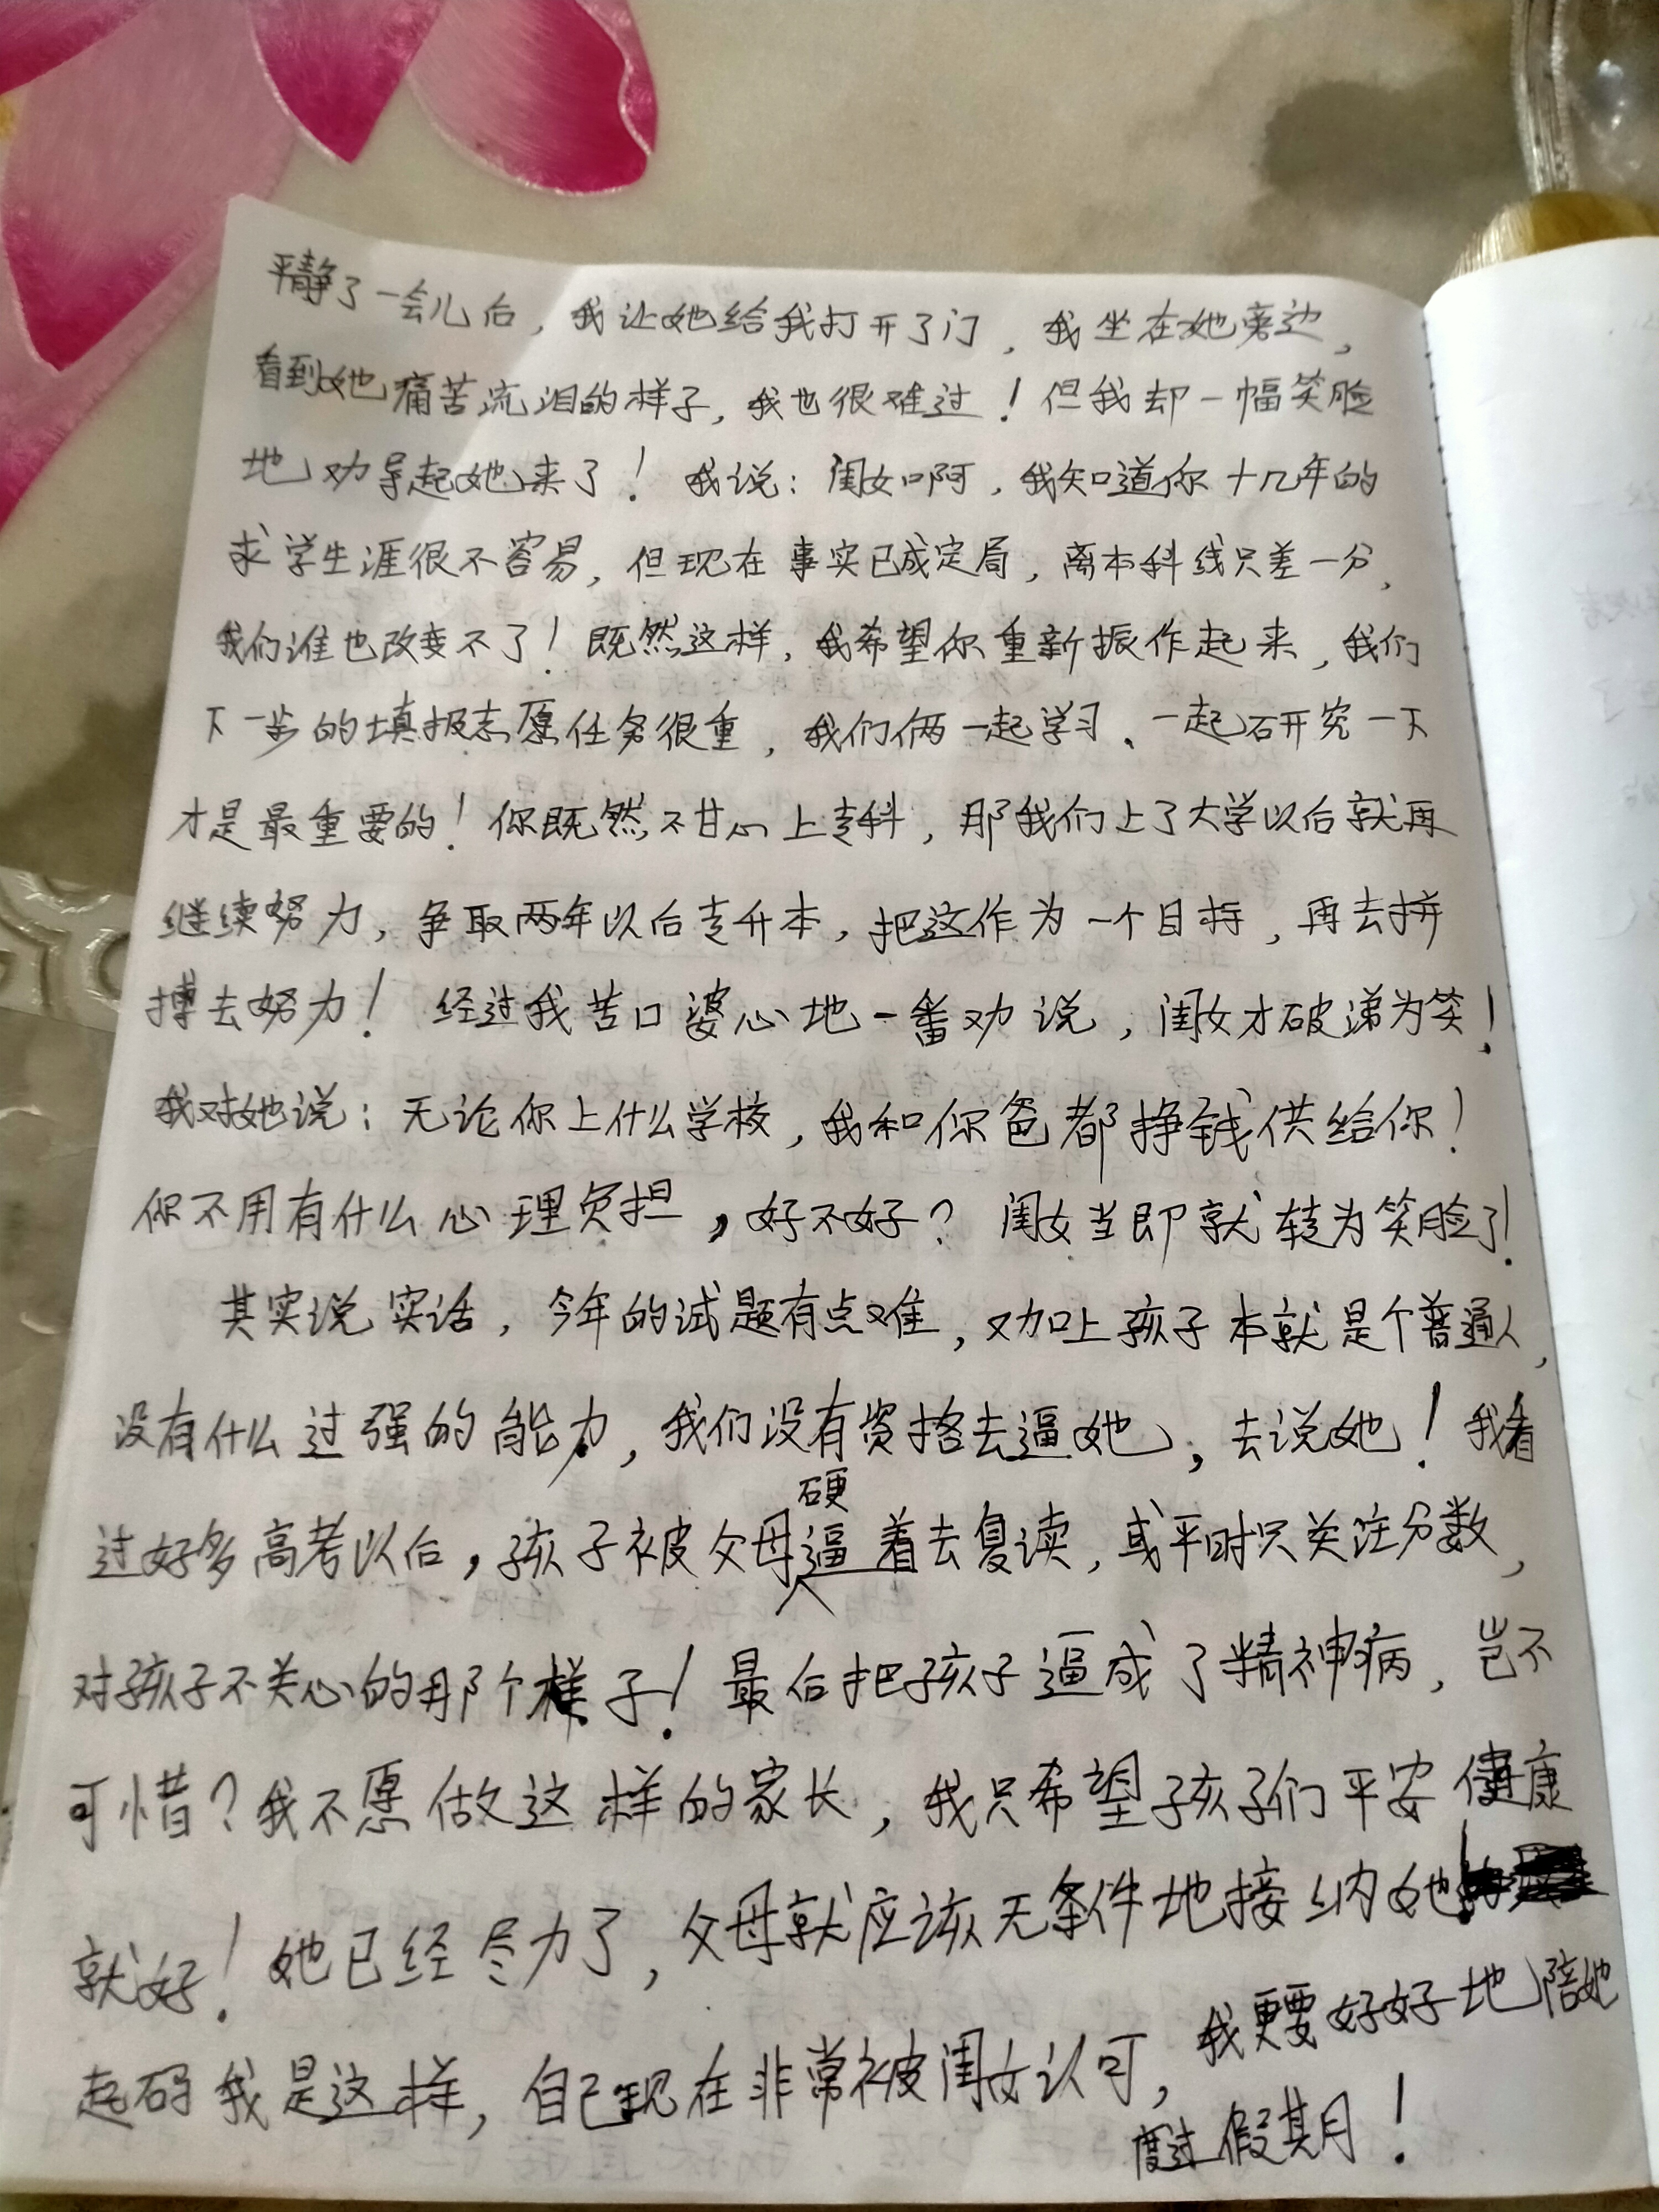 平静了一会儿后，我让她给我打开了门，我坐在她旁边，
看到她痛苦流泪的样子，我也很难过！但我却一幅笑脸
地劝导起她来了！我说：闺女啊，我知道你十几年的
求学生涯很不容易，但现在事实已成定局，离本科线只差一分，
我们谁也改变不了！既然这样，我希望你重新振作起来，我们
下一步的填报志愿任务很重，我们俩一起学习、一起研究一下
才是最重要的！你既然不甘心上专科，那我们上了大学以后就再
继续努力，争取两年以后专升本，把这作为一个目标，再去拼
搏去努力！经过我苦口婆心地一番劝说，闺女才破涕为笑！
我对她说：无论你上什么学校，我和你爸都挣钱供给你！
你不用有什么心理负担，好不好？闺女当即就转为笑脸了！
其实说实话，今年的试题有点难，又加上孩子本就是个普通人，
没有什么过强的能力，我们没有资格去逼她，去说她！我看
过好多高考以后，孩子被父母硬逼着去复读，或平时只关注分数，
对孩子不关心的那个样子！最后把孩子逼成了精神病，岂不
可惜？我不愿做这样的家长，我只希望孩子们平安健康
就好！她已经尽力了，父母就应该无条件地接纳她！
起码我是这样，自己现在非常被闺女认可，我更要好好地陪她
度过假期！